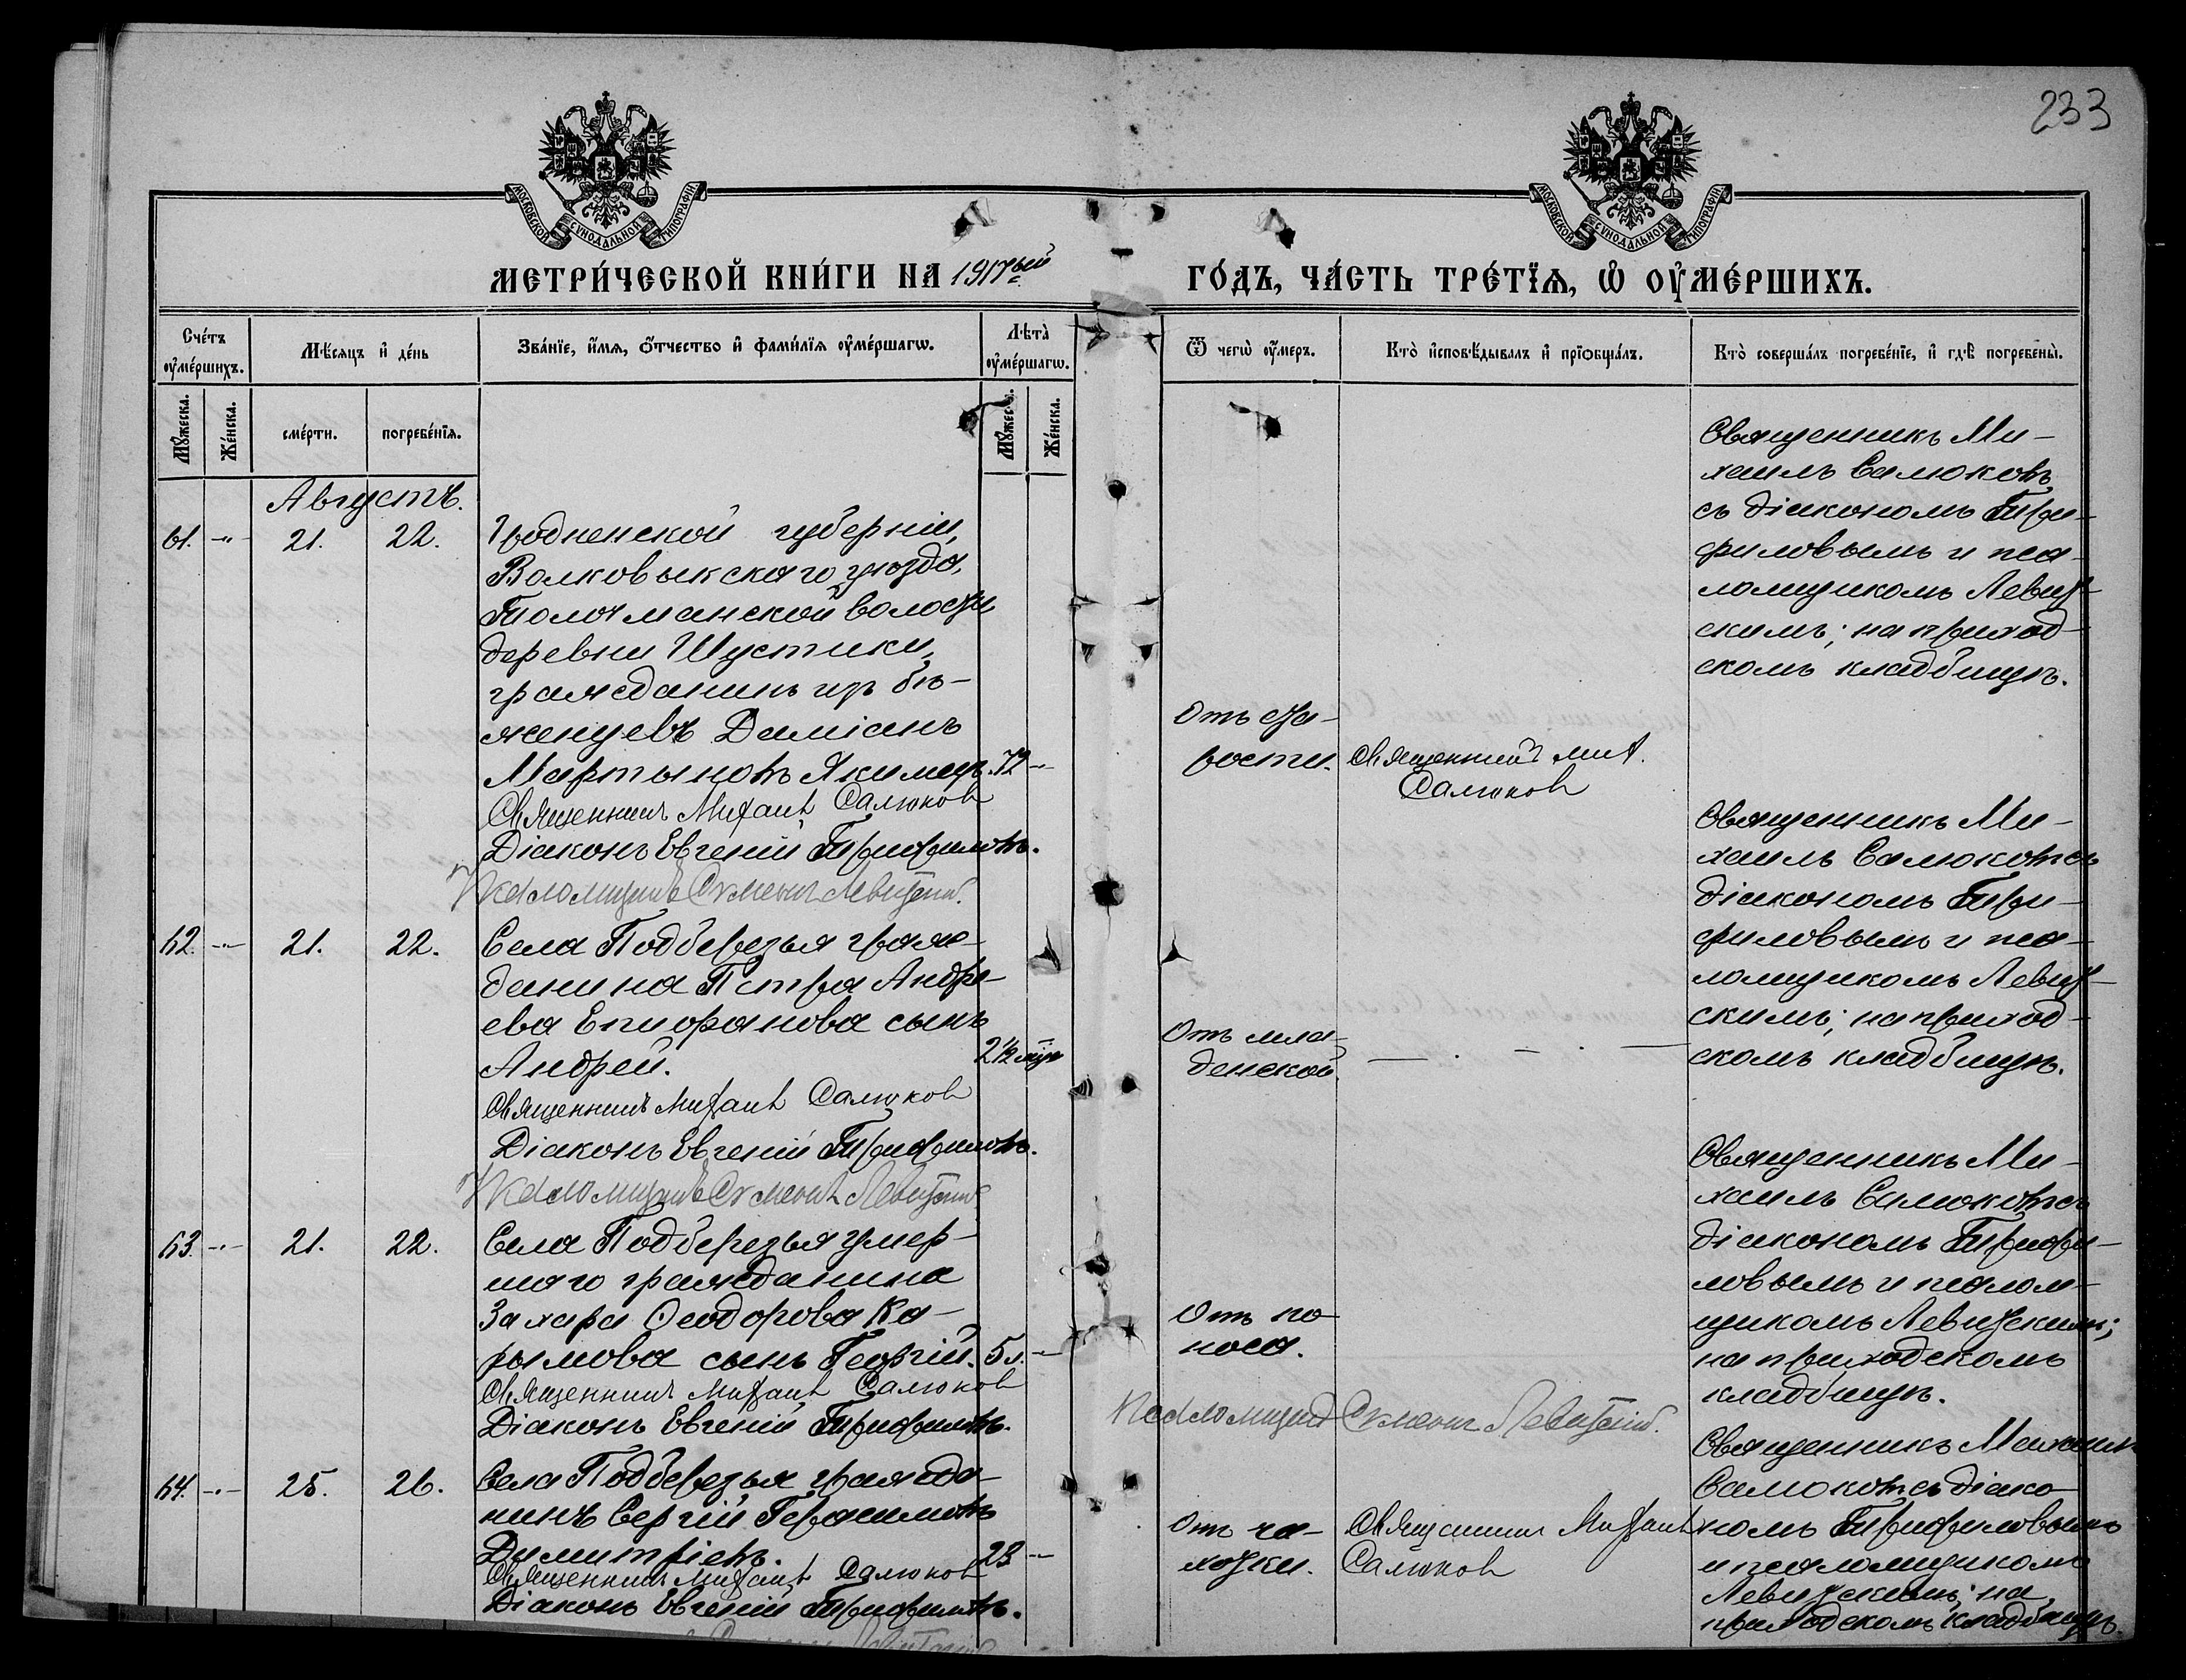 233
МОСКОВСКОЙ СѴНОДАЛЬНОЙ ТИПОГРАФІИ
МОСКОВСКОЙ СѴНОДАЛЬНОЙ ТИПОГРАФІИ
МЕТРИ́ЧЕСКОЙ КНИ́ГИ НА 1917ый
ГО́ДЪ, ЧА́СТЬ ТРЕ́ТЇѦ, Ѡ҆ ОУ҆МЕ́РШИХЪ.
Сче́тъ оу҆ме́ршихъ.
Мѣ́сяцъ и҆ де́нь
Зва́нїе, и҆́мѧ, ѻ҆́тчество и҆ фами́лїѧ оу҆ме́ршагѡ.
Лѣ́та оу҆ме́ршагѡ.
Ѿ чегѡ̀ оу҆́меръ.
Кто̀ и҆сповѣ́дывалъ и҆ прїѡбща́лъ.
Кто̀ соверша́лъ погребе́нїе, и҆ гдѣ̀ погребены̀.
Мꙋ́жеска.
Же́нска.
сме́рти.
погребе́нїѧ.
Мꙋ́жеска.
Же́нска.
Августъ.
61. -"- 21. 22.
Гродненской губерніи,
Волковыкскаго уѣзда,
Толочманской волости
деревни Шустики,
гражданинъ изъ бѣ-
женцевъ Даміанъ
Мартыновъ Якимецъ. 72 -"-
Священникъ Михаилъ Салюковъ
Діаконъ Евгеній Трифиловъ.
Псаломщикъ Симеонъ Левитскій.
Отъ ста-
рости.
Священникъ Мих.
Салюковъ
Священникъ Ми-
хаилъ Салюковъ
съ діакономъ Три-
филовымъ и пса-
ломщикомъ Левит-
скимъ; на приход-
скомъ кладбищѣ.
62. -"- 21. 22.
Села Подберезья граж-
данина Петра Андре-
ева Епифанова сынъ
Андрей. 2½ мѣс
Священникъ Михаилъ Салюковъ
Діаконъ Евгеній Трифиловъ.
Псаломщикъ Симеонъ Левитскій
Отъ мла-
денской.
Священникъ Ми-
хаилъ Салюковъ съ
діакономъ Три-
филовымъ и пса-
ломщикомъ Левит-
скимъ; на приход-
скомъ кладбищѣ.
63. -"- 21. 22.
Села Подберезья умер-
шаго гражданина
Захара Ѳеодорова Ка-
рымова сынъ Георгій. 5 л. -"-
Священникъ Михаилъ Салюковъ
Діаконъ Евгеній Трифиловъ.
Псаломщикъ Симеонъ Левитскій.
Отъ по-
носа.
Священникъ Ми-
хаилъ Салюковъ съ
діакономъ Трифи-
ловымъ и псалом-
щикомъ Левитскимъ;
на приходскомъ
кладбищѣ.
64. -"- 25. 26.
Села Подберезья гражда-
нинъ Сергій Герасимовъ
Димитріевъ. 23 -"-
Священникъ Михаилъ Салюковъ
Діаконъ Евгеній Трифиловъ.
Отъ ча-
хотки.
Священникъ Михаилъ
Салюковъ
Священникъ Михаилъ
Салюковъ съ діако-
номъ Трифиловымъ
и псаломщикомъ
Левитскимъ; на
приходскомъ кладбищѣ.